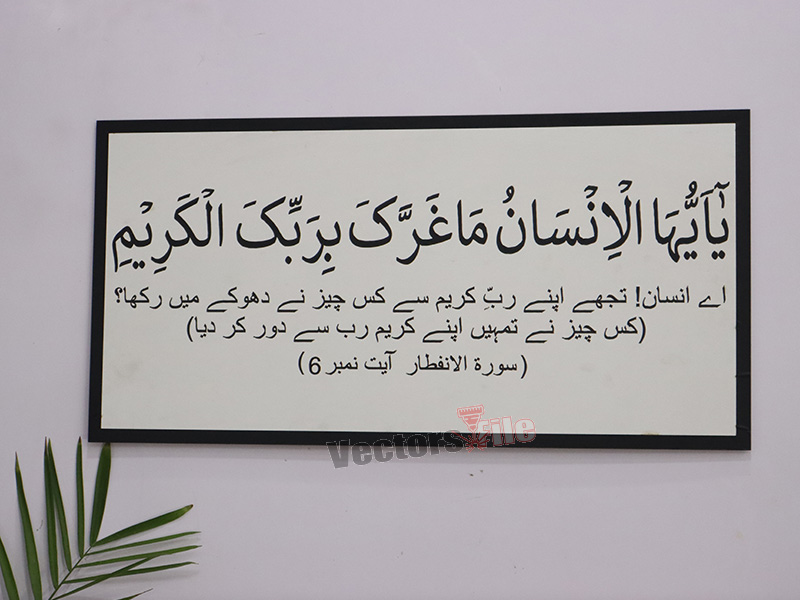 يٰۤاَيُّهَا الْاِنْسَانُ مَا غَرَّکَ بِرَبِّکَ الْکَرِيْمِ
اے انسان! تجھے اپنے ربِّ کریم سے کس چیز نے دھوکے میں رکھا؟
(کس چیز نے تمہیں اپنے کریم رب سے دور کر دیا)
(سورة الانفطار آیت نمبر 6)
Vectorsfile